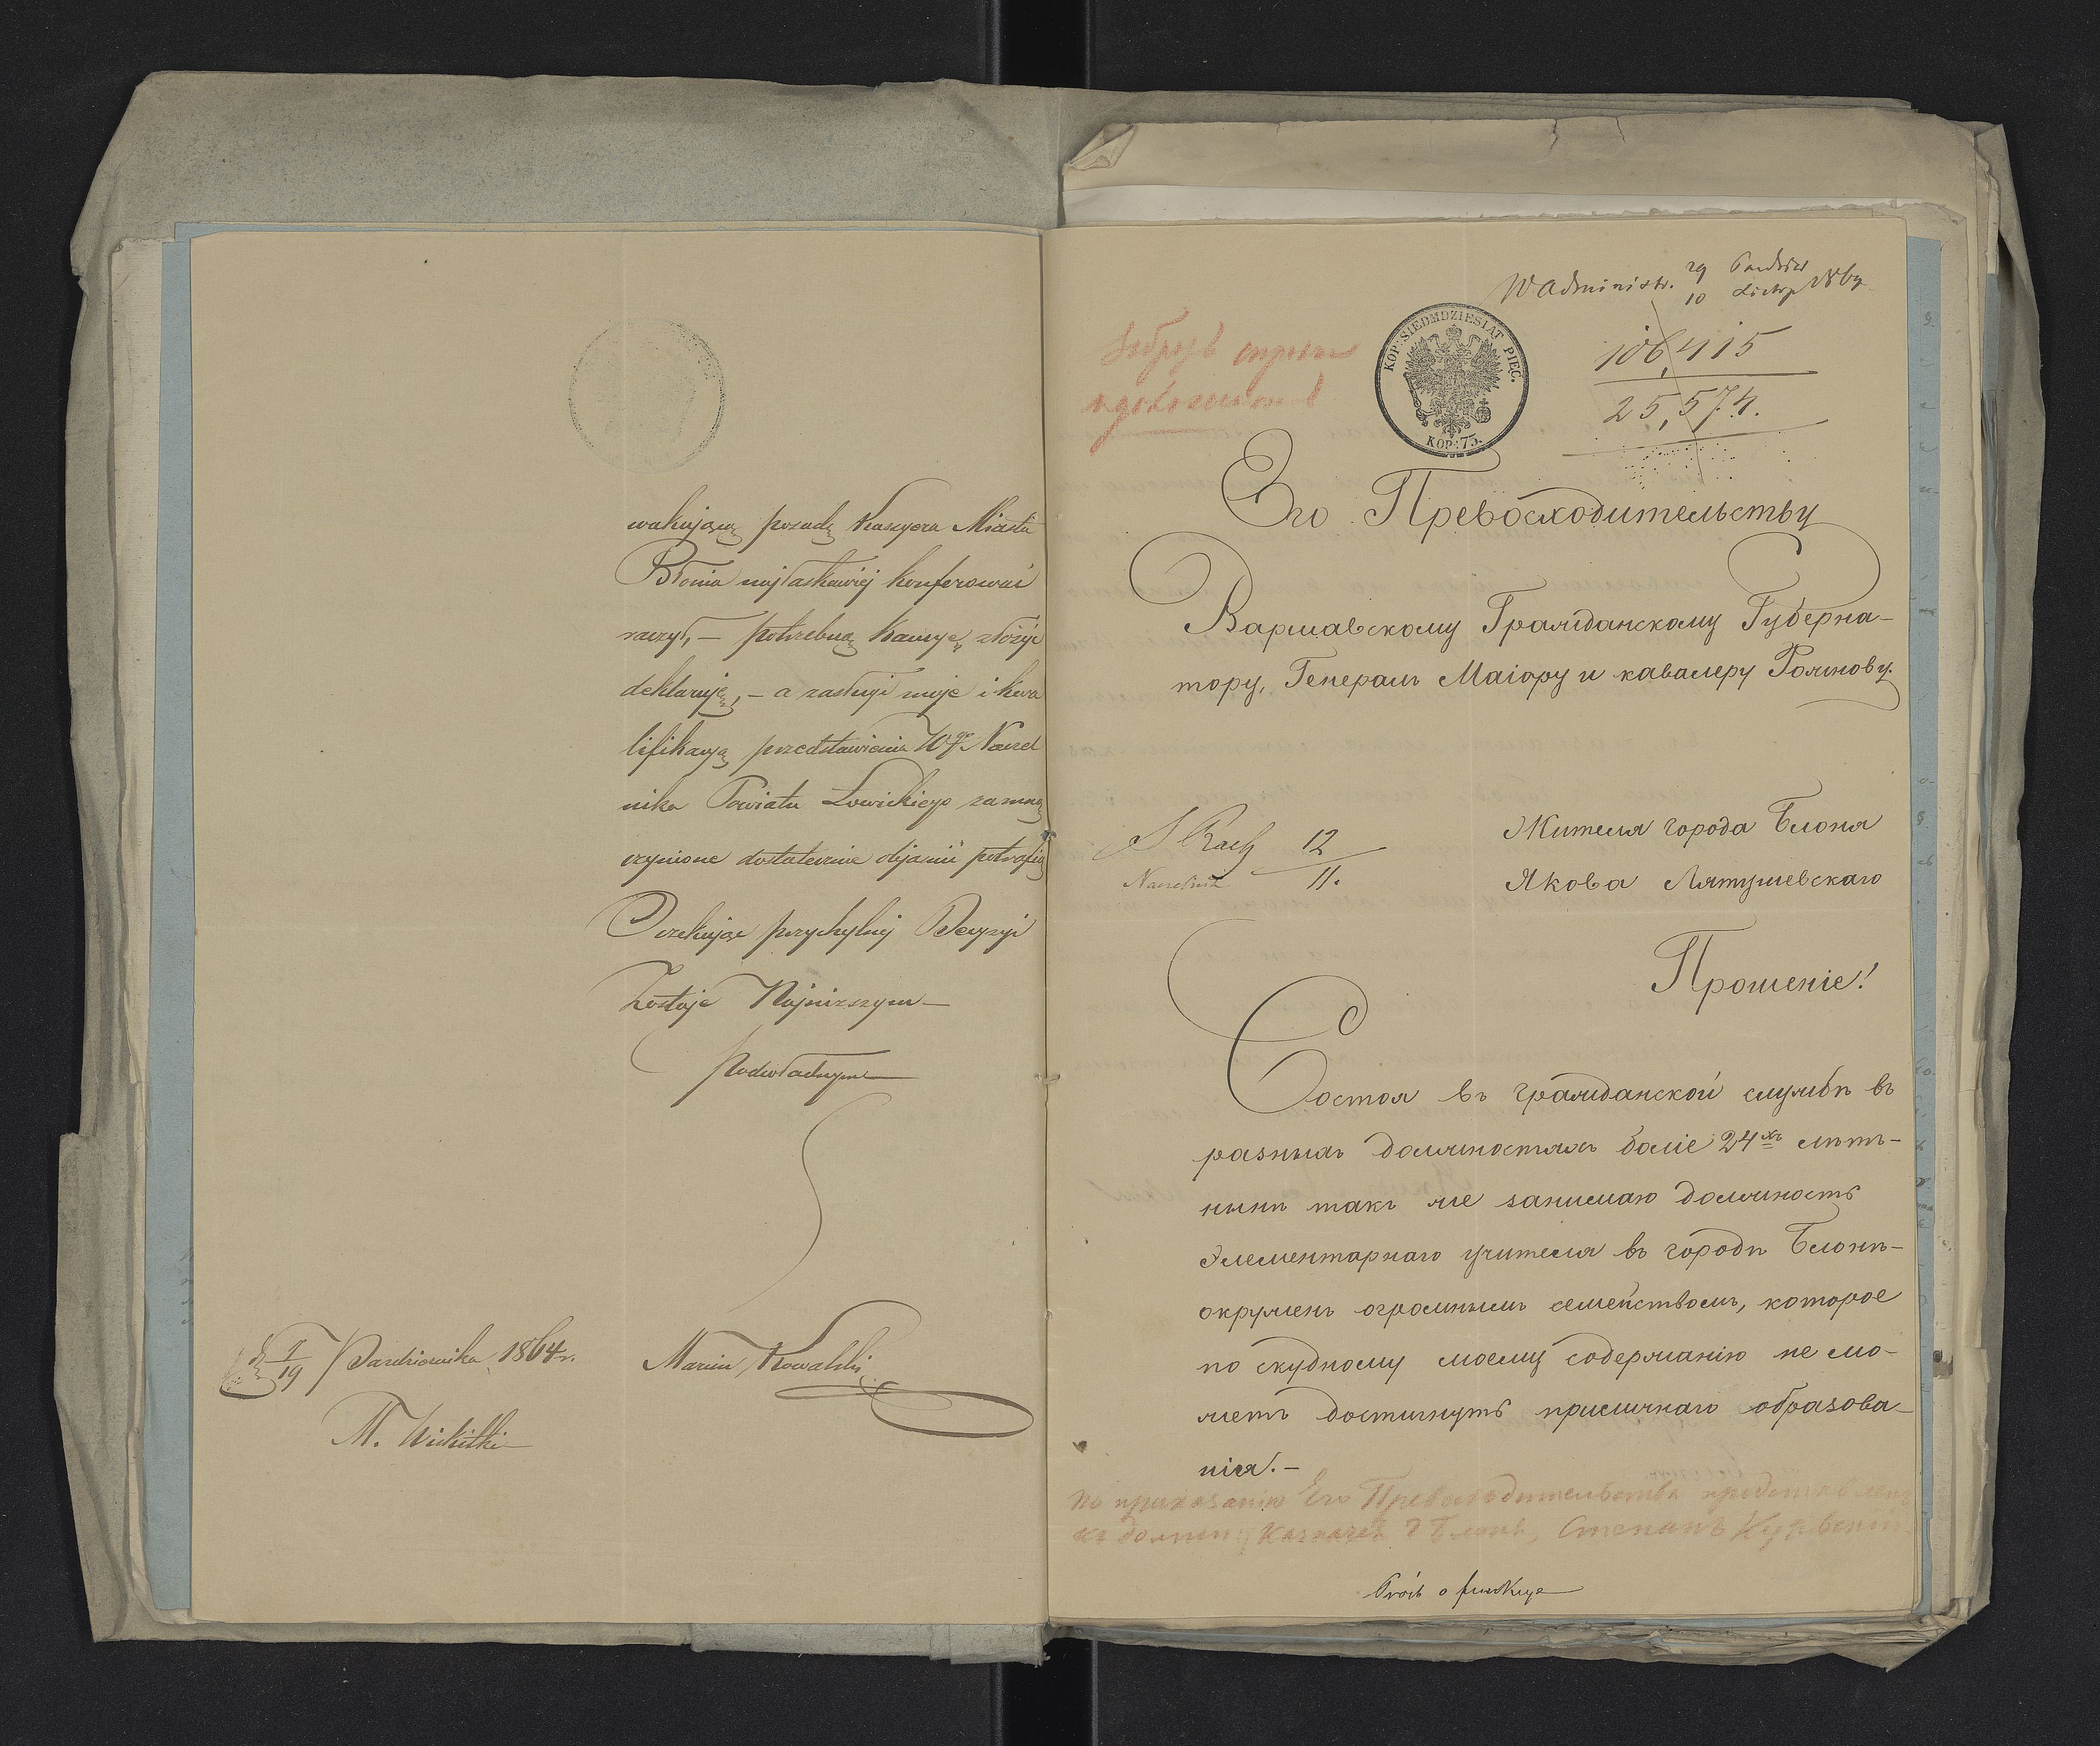 wakującą posadę Kassyera Miasta
Błonia najłaskawiej konferować
raczył, — potrzebną kaucyę złożyć
deklaruję, — a zasługi moje i kwa
lifikacyą przedstawienie Wgo Naczel
nika Powiatu Łowickiego zamną
czynione dostatecznie objaśnić potrafią
Oczekując przychylnej Decyzyi
Zostaję Najniższym
podwładnym
Marcin Kowalski
d. 7/19 Października 1864 r.
M. Wiskitki
W Administr. 29 Paździer 1864
10 Listop
106,415
25,574.
KOP: SIEDMDZIESIAT PIĘC.
KOP: 75.
Его Превосходительству
Варшавскому Гражданскому Губерна-
тору, Генералъ Маіору и кавалеру Рожнову.
12
Naczelnik 11.
Жителя города Блоня
Якова Лятушевскаго
Прошеніе!
Состоя въ гражданской службѣ въ
разныхъ должностяхъ боліе 24хъ лѣтъ-
нынѣ такъ же занимаю должность
Элементарнаго учителя въ городѣ Блонѣ-
окружень огромнымъ семействомъ, которое
по скудному моему содержанію не мо-
жетъ достигнуть приличнаго образова-
нія. —
По приказанію Его Превосходительства представленъ
къ должн. Казначея г. Блонь, Степанъ
Prośb o funkcye